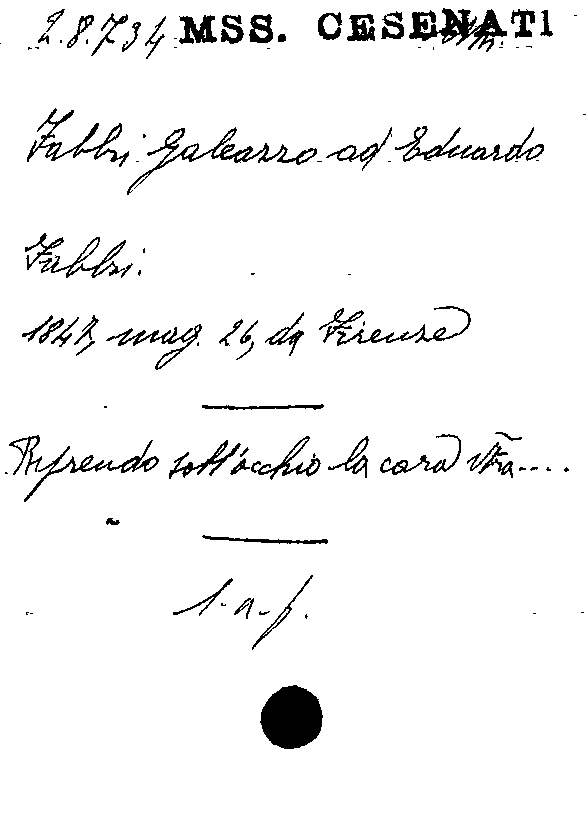 2.8.734 MSS. CESENATI
Fabbri Galeazzo ad Eduardo
Fabbri.
1847, mag. 26, da Firenze
Riprendo sott'occhio la cara Vtra....
l. a. f.